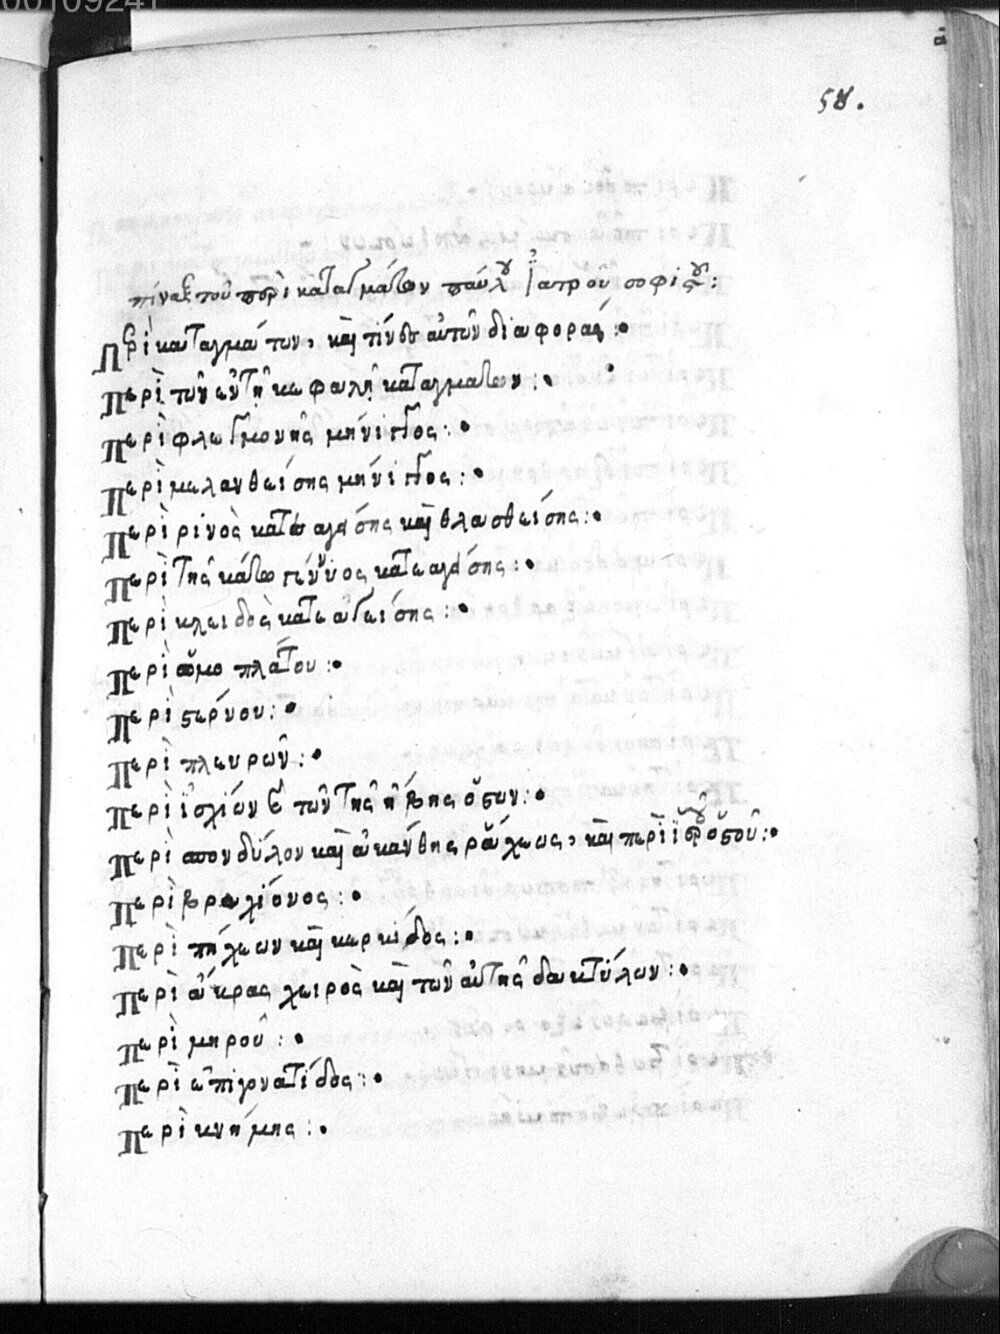 0010924
58.
πίναξ τοῦ περὶ καταγμάτων παύλου ἰατροῦ σοφιστοῦ:
Περὶ καταγμάτων, καὶ τίνες αὐτῶν διαφοραί:•
Περὶ τῶν ἐν τῇ κεφαλῇ καταγμάτων:•
Περὶ φλεγμονῆς μήνιγγος:•
Περὶ μελανθείσης μήνιγγος:•
Περὶ ῥινὸς κατεαγείσης καὶ θλασθείσης:•
Περὶ τῆς κάτω γέννυος κατεαγείσης:•
Περὶ κλειδὸς κατεαγείσης:•
Περὶ ὠμοπλάτου:•
Περὶ στέρνου:•
Περὶ πλευρῶν:•
Περὶ ἰσχίων καὶ τῶν τῆς ἥβης ὀστῶν:•
Περὶ σπονδύλου καὶ ἀκάνθης ῥάχεως, καὶ περὶ ἱεροῦ ὀστοῦ:•
Περὶ βραχίονος:•
Περὶ πήχεων καὶ κερκίδος:•
Περὶ ἄκρας χειρὸς καὶ τῶν αὐτῆς δακτύλων:•
Περὶ μηροῦ:•
Περὶ ἐπιγονατίδος:•
Περὶ κνήμης:•